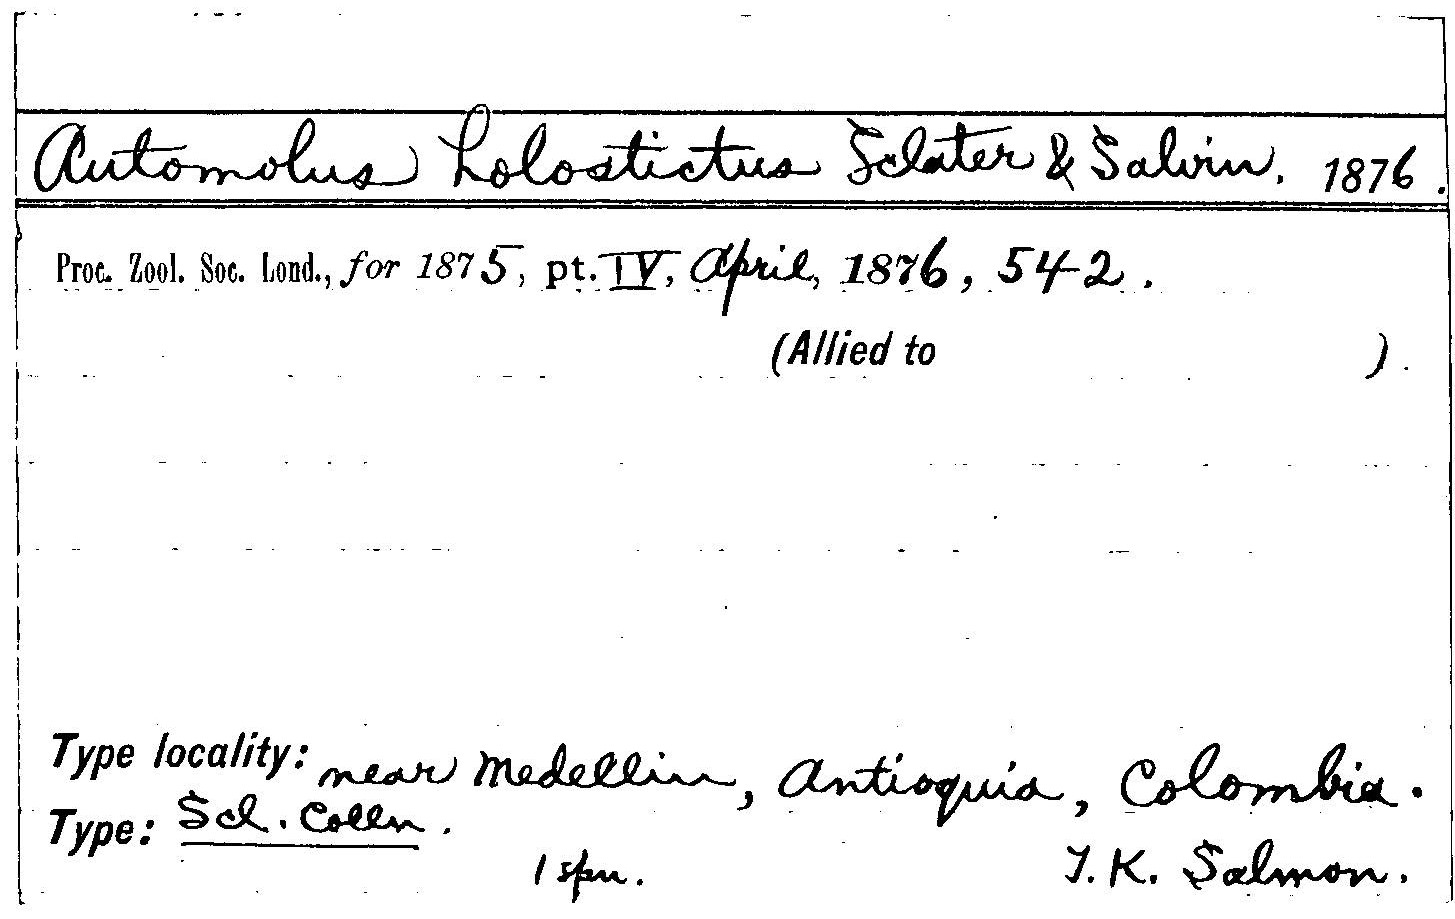 Automolus holostictus Sclater & Salvin. 1876.
Proc. Zool. Soc. Lond., for 1875, pt. IV, April, 1876, 542.
(Allied to ).
Type locality: near Medellin, Antioquia, Colombia.
Type: Scl. Colln.
1 spn. T. K. Salmon.